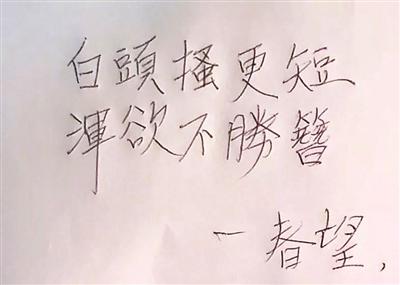 白頭搔更短
渾欲不勝簪
一春望,